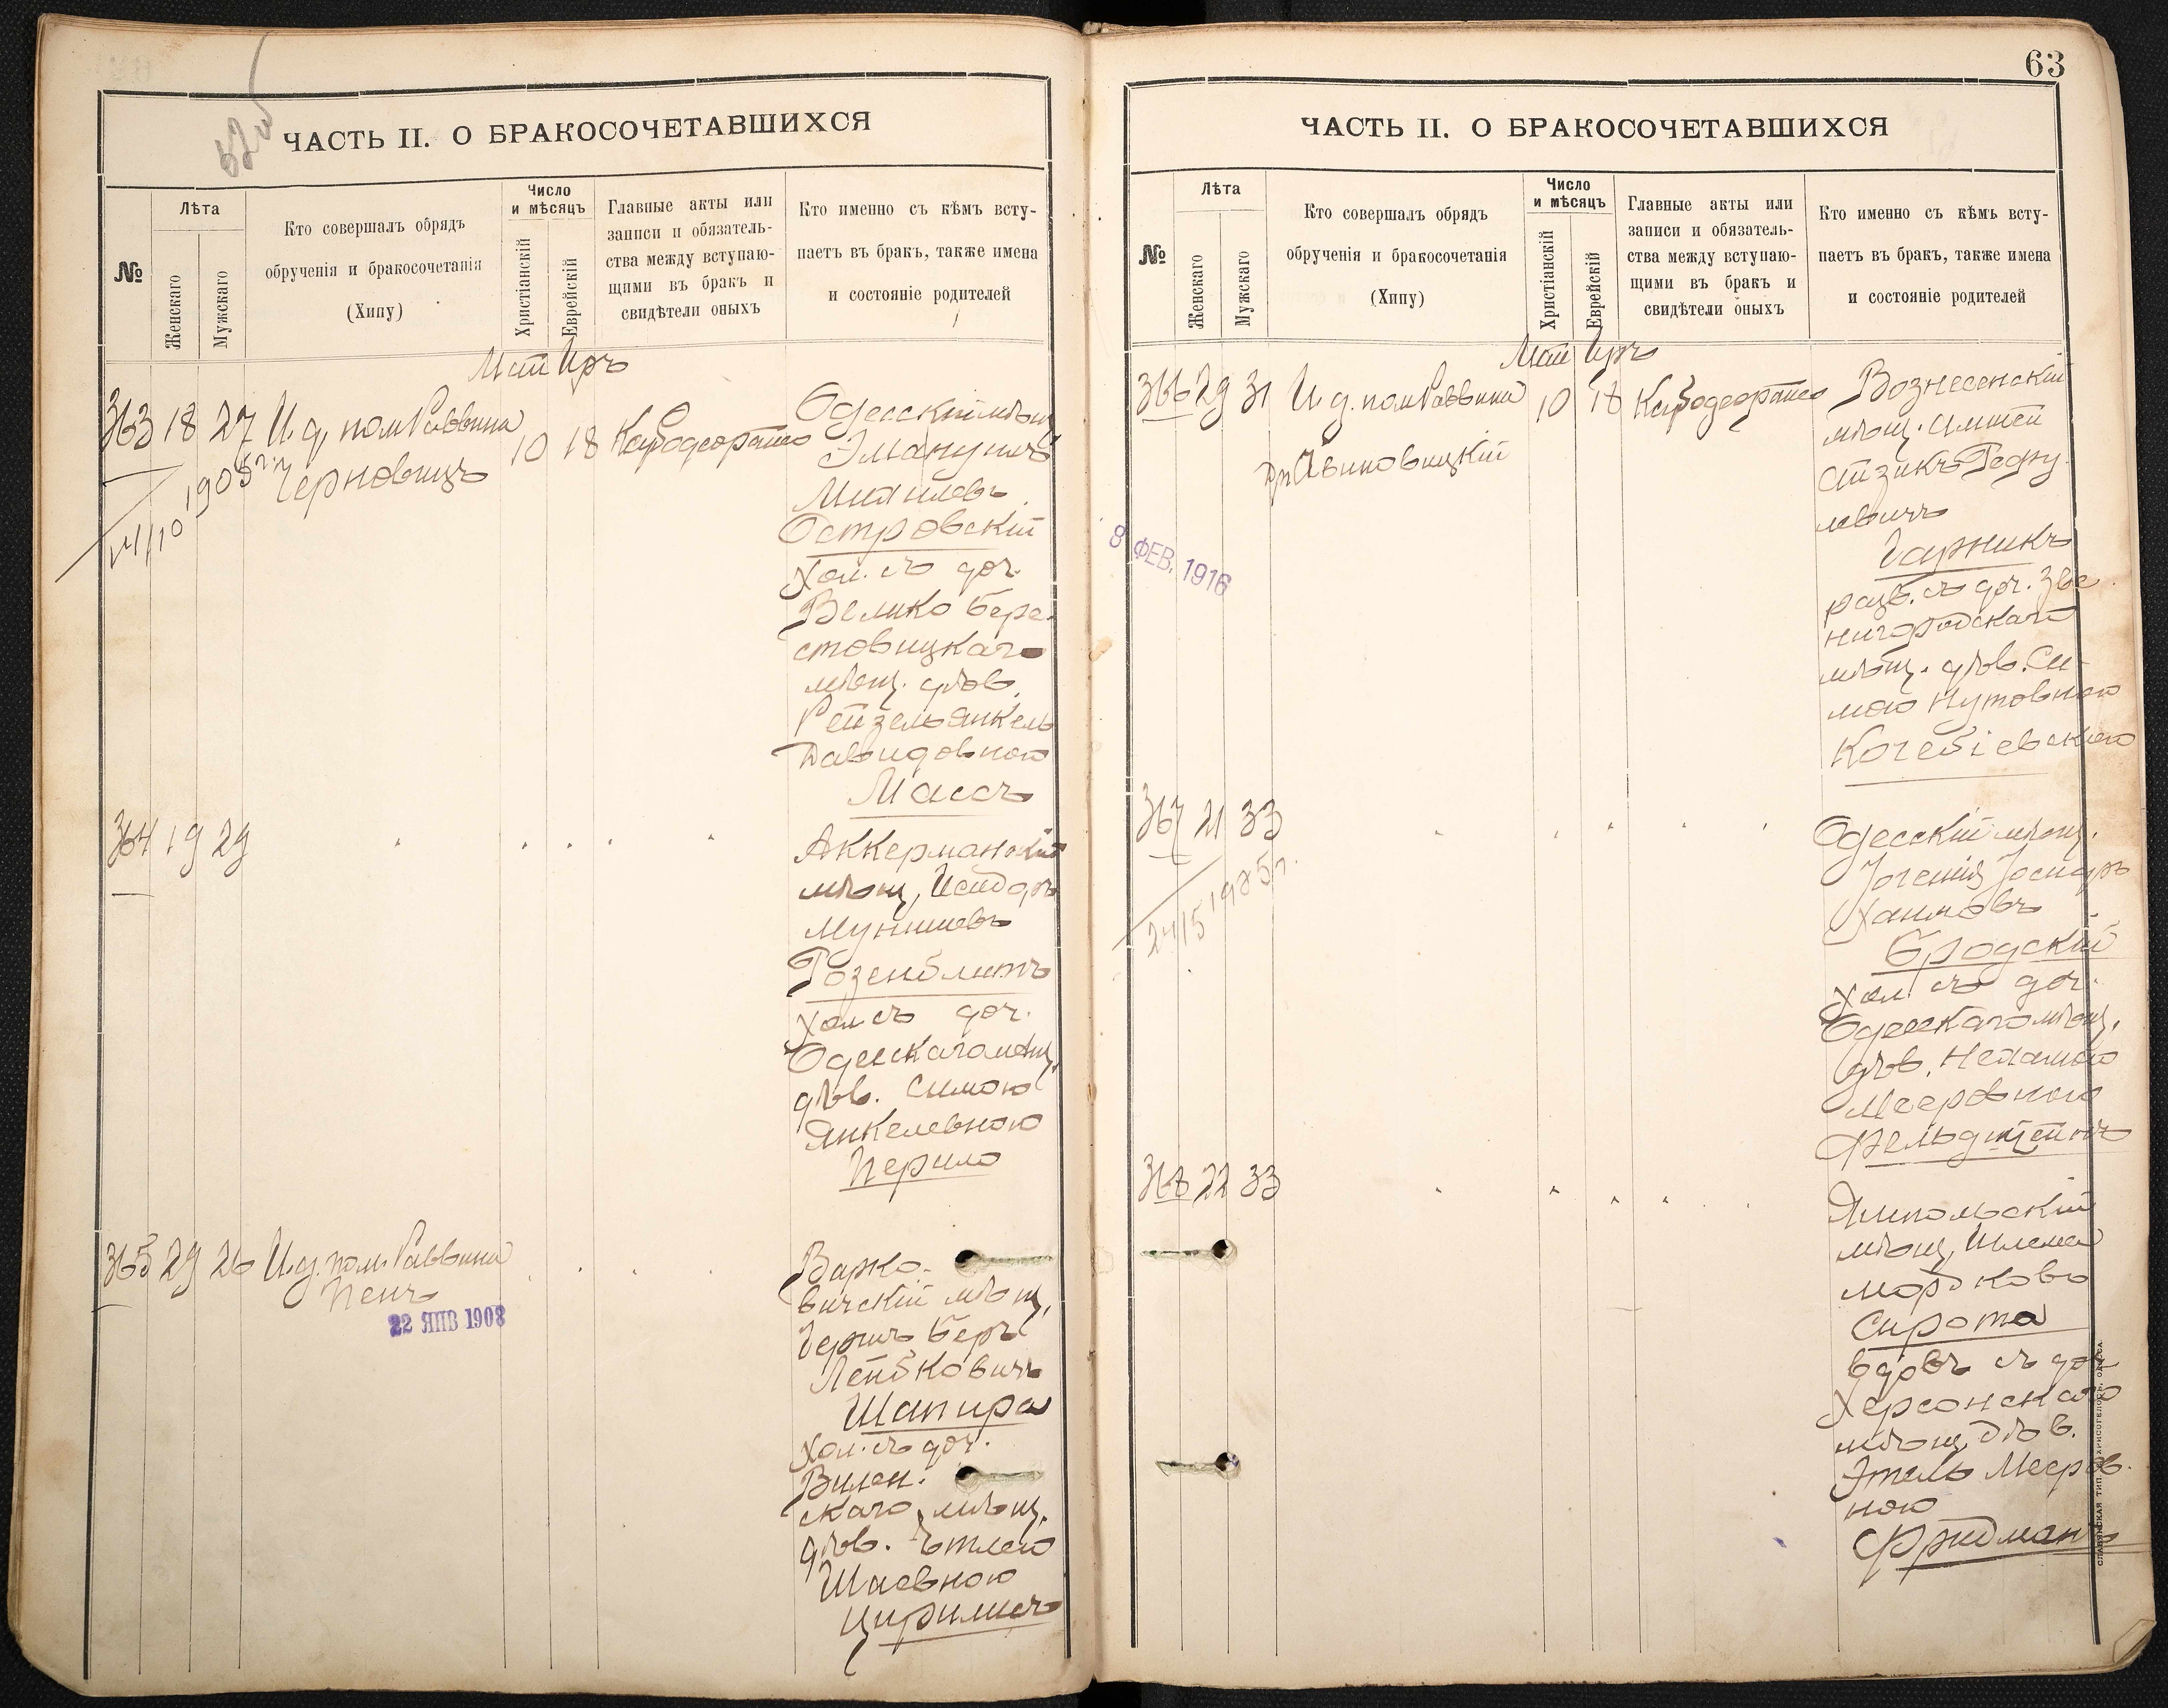 ЧАСТЬ II. О БРАКОСОЧЕТАВШИХСЯ
№
Лѣта
Женскаго
Мужскаго
Кто совершалъ обрядъ
обрученія и бракосочетанія
(Хипу)
Число
и мѣсяцъ
Христіанскій
Еврейскій
Главные акты или
записи и обязатель-
ства между вступаю-
щими въ бракъ и
свидѣтели оныхъ
Кто именно съ кѣмъ всту-
паетъ въ бракъ, также имена
и состояніе родителей
Май Иръ
363 18 27 И.д. пом Раввина 10 18
Черновицъ
1905 г.
14/10
Одесскій мѣщ.
Эмануилъ
Островскій
Хол. съ доч.
Велико Бере-
стовицкаго
мѣщ. дѣв.
Рейзель Янкель
Давидовною
Массъ
364 19 29
Аккерманскій
мѣщ. Исидоръ
Розенблитъ
Хол съ доч.
Одесскаго мѣщ.
дѣв. Симою
Янкелевною
Перило
365 29 26 И.д. пом. Раввина
Пенъ
22 ЯНВ 1908
Варко-
вичскій мѣщ.
Герш Беръ
Лейбковичъ
Шапира
Хол. съ доч.
Вилен-
скаго мѣщ.
дѣв. Этлею
Шаевною
63
ЧАСТЬ II. О БРАКОСОЧЕТАВШИХСЯ
№
Лѣта
Женскаго
Мужскаго
Кто совершалъ обрядъ
обрученія и бракосочетанія
(Хипу)
Число
и мѣсяцъ
Христіанскій
Еврейскій
Главные акты или
записи и обязатель-
ства между вступаю-
щими въ бракъ и
свидѣтели оныхъ
Кто именно съ кѣмъ всту-
паетъ въ бракъ, также имена
и состояніе родителей
Май Иръ
366 29 31 И.д. пом Раввина 10 18
Др. Авиновицкій
8 ФЕВ. 1916
Вознесенскій
мѣщ.
Гарникъ
разв. съ доч. Зве
нигородскаго
мѣщ. дѣв. Си-
мою Нутовною
Кочебіевскою
367 21 33
24/5 1925 г.
Одесскій мѣщ.
Хаимовъ
Бродскій
Хол. съ доч.
Одесскаго мѣщ.
дѣв. Нехамою
Мееровною
Фельдштейнъ
368 22 33
Ямпольскій
мѣщ. Шлема
Мордковъ
Сирота
вдовъ съ доч
Херсонскаго
мѣщ. дѣв.
Этель Мееров-
ною
Фридманъ